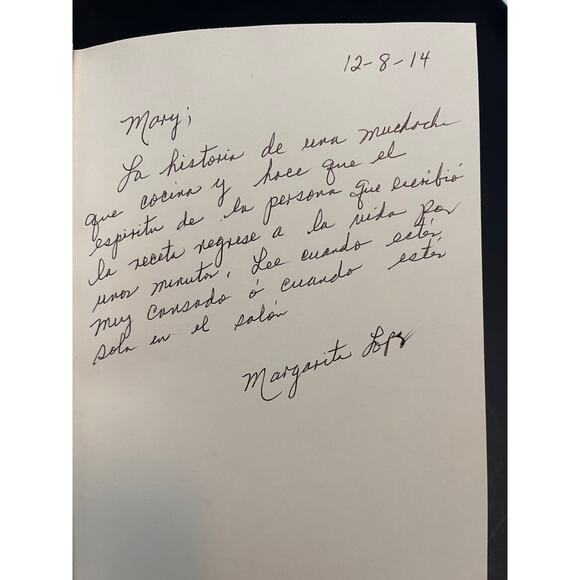 12-8-14
Mary;
La historia de una muchacha
que cocina y hace que el
espiritu de la persona que escribió
la receta regrese a la vida por
unos minutos. Lee cuando estés
muy cansado ó cuando estés
sola en el salón
Margarita Lopez